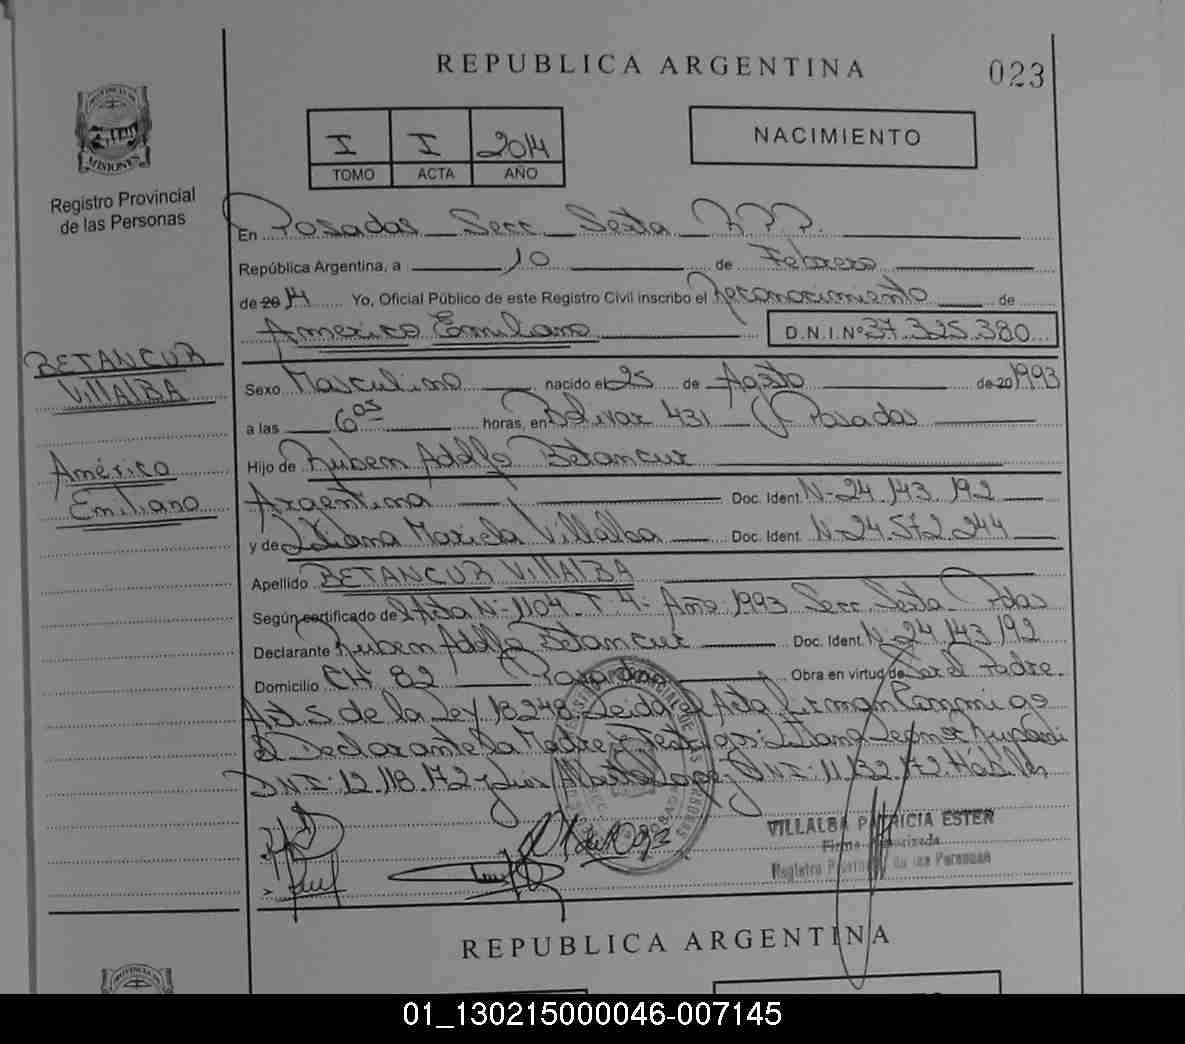 REPUBLICA ARGENTINA
023
PROVINCIA DE
MISIONES
Registro Provincial
de las Personas
I I 2014
TOMO ACTA AÑO
NACIMIENTO
En Posadas Secc Sexta R.P.P.
República Argentina, a 10 de Febrero
de 2014 Yo, Oficial Público de este Registro Civil inscribo el Reconocimiento de
Americo Emiliano D.N.I. Nº 37.325.380
BETANCUR
VillAlBA
Américo
Emiliano
Sexo Masculino nacido el 25 de Agosto de 20 1993
a las 6 05 horas, en Bolivar 431 Posadas
Hijo de Ruben Adolfo Betancur
Argentina Doc. Ident. Nº 24.143.192
y de Liliana Mariela Villalba Doc. Ident. Nº 24.572.244
Apellido BETANCUR VillAlBA
Según certificado de Acta Nº 1104 T 4º Año 1993 Secc Sexta Pdas
Declarante Ruben Adolfo Betancur Doc. Ident. Nº 24.143.192
Domicilio CH 82 Posadas Obra en virtud de Ser el Padre.
Art 5 de la Ley 18248 Leida el Acta Firman Conmigo
El Declarante la Madre y Testigos: Liliana Leonor
D.N.I: 12.118.172 y Luis Alberto Lopez D.N.I: 11.132.172
VILLALBA PATRICIA ESTER
Firma Autorizada
Registro Provincial de las Personas
REPUBLICA ARGENTINA
01_130215000046-007145